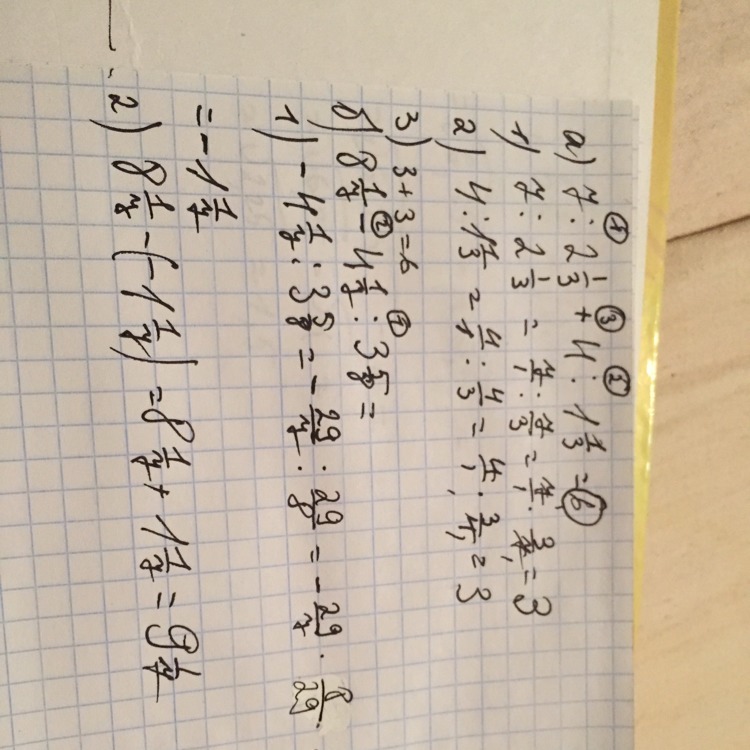 а) 7 : 2 1/3 + 4 : 1 1/3 = 6
1) 7 : 2 1/3 = 7/1 : 7/3 = 7/1 · 3/7 = 3
2) 4 : 1 1/3 = 4/1 : 4/3 = 4/1 · 3/4 = 3
3) 3 + 3 = 6
б) 8 1/7 - 4 1/7 : 3 5/8 =
1) - 4 1/7 : 3 5/8 = - 29/7 : 29/8 = - 29/7 · 8/29
= - 1 1/7
2) 8 1/7 - (- 1 1/7) = 8 1/7 + 1 1/7 = 9 1/7